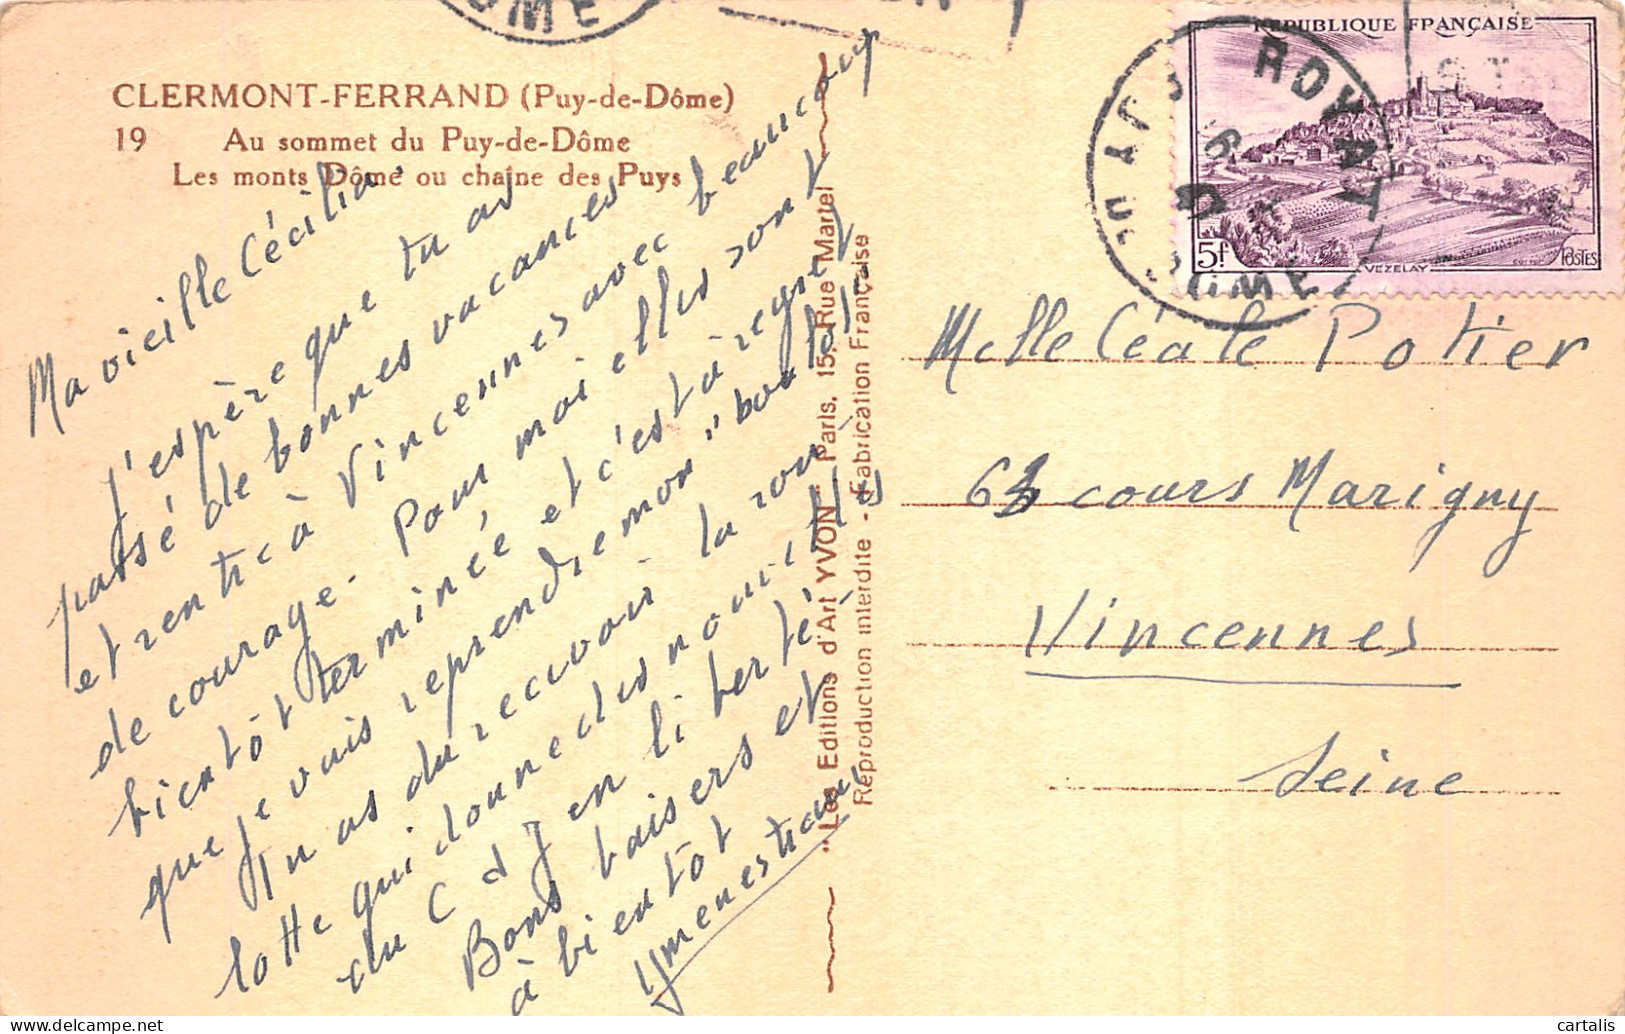 CLERMONT-FERRAND (Puy-de-Dôme)
19 Au sommet du Puy-de-Dôme
Les monts Dôme ou chaîne des Puys
Ma vieille Cécilia,
J'espère que tu as
passé de bonnes vacances
et rentre à Vincennes avec beaucoup
de courage. Pour moi elles sont
bientôt terminée et c'est à regret
que je vais reprendre mon "boulot".
Tu as du recevoir la rou-
lotte qui donne des nouvelles
du C d J en liberté.
Bons baisers et
à bientôt
"Les Editions d'Art YVON" Paris, 15, Rue Martel
Reproduction interdite - Fabrication Française
RÉPUBLIQUE FRANÇAISE
5f
VEZELAY
POSTES
ROYAT
DOME
Melle Céale Potier
63 cours Marigny
Vincennes
Seine
cartalis